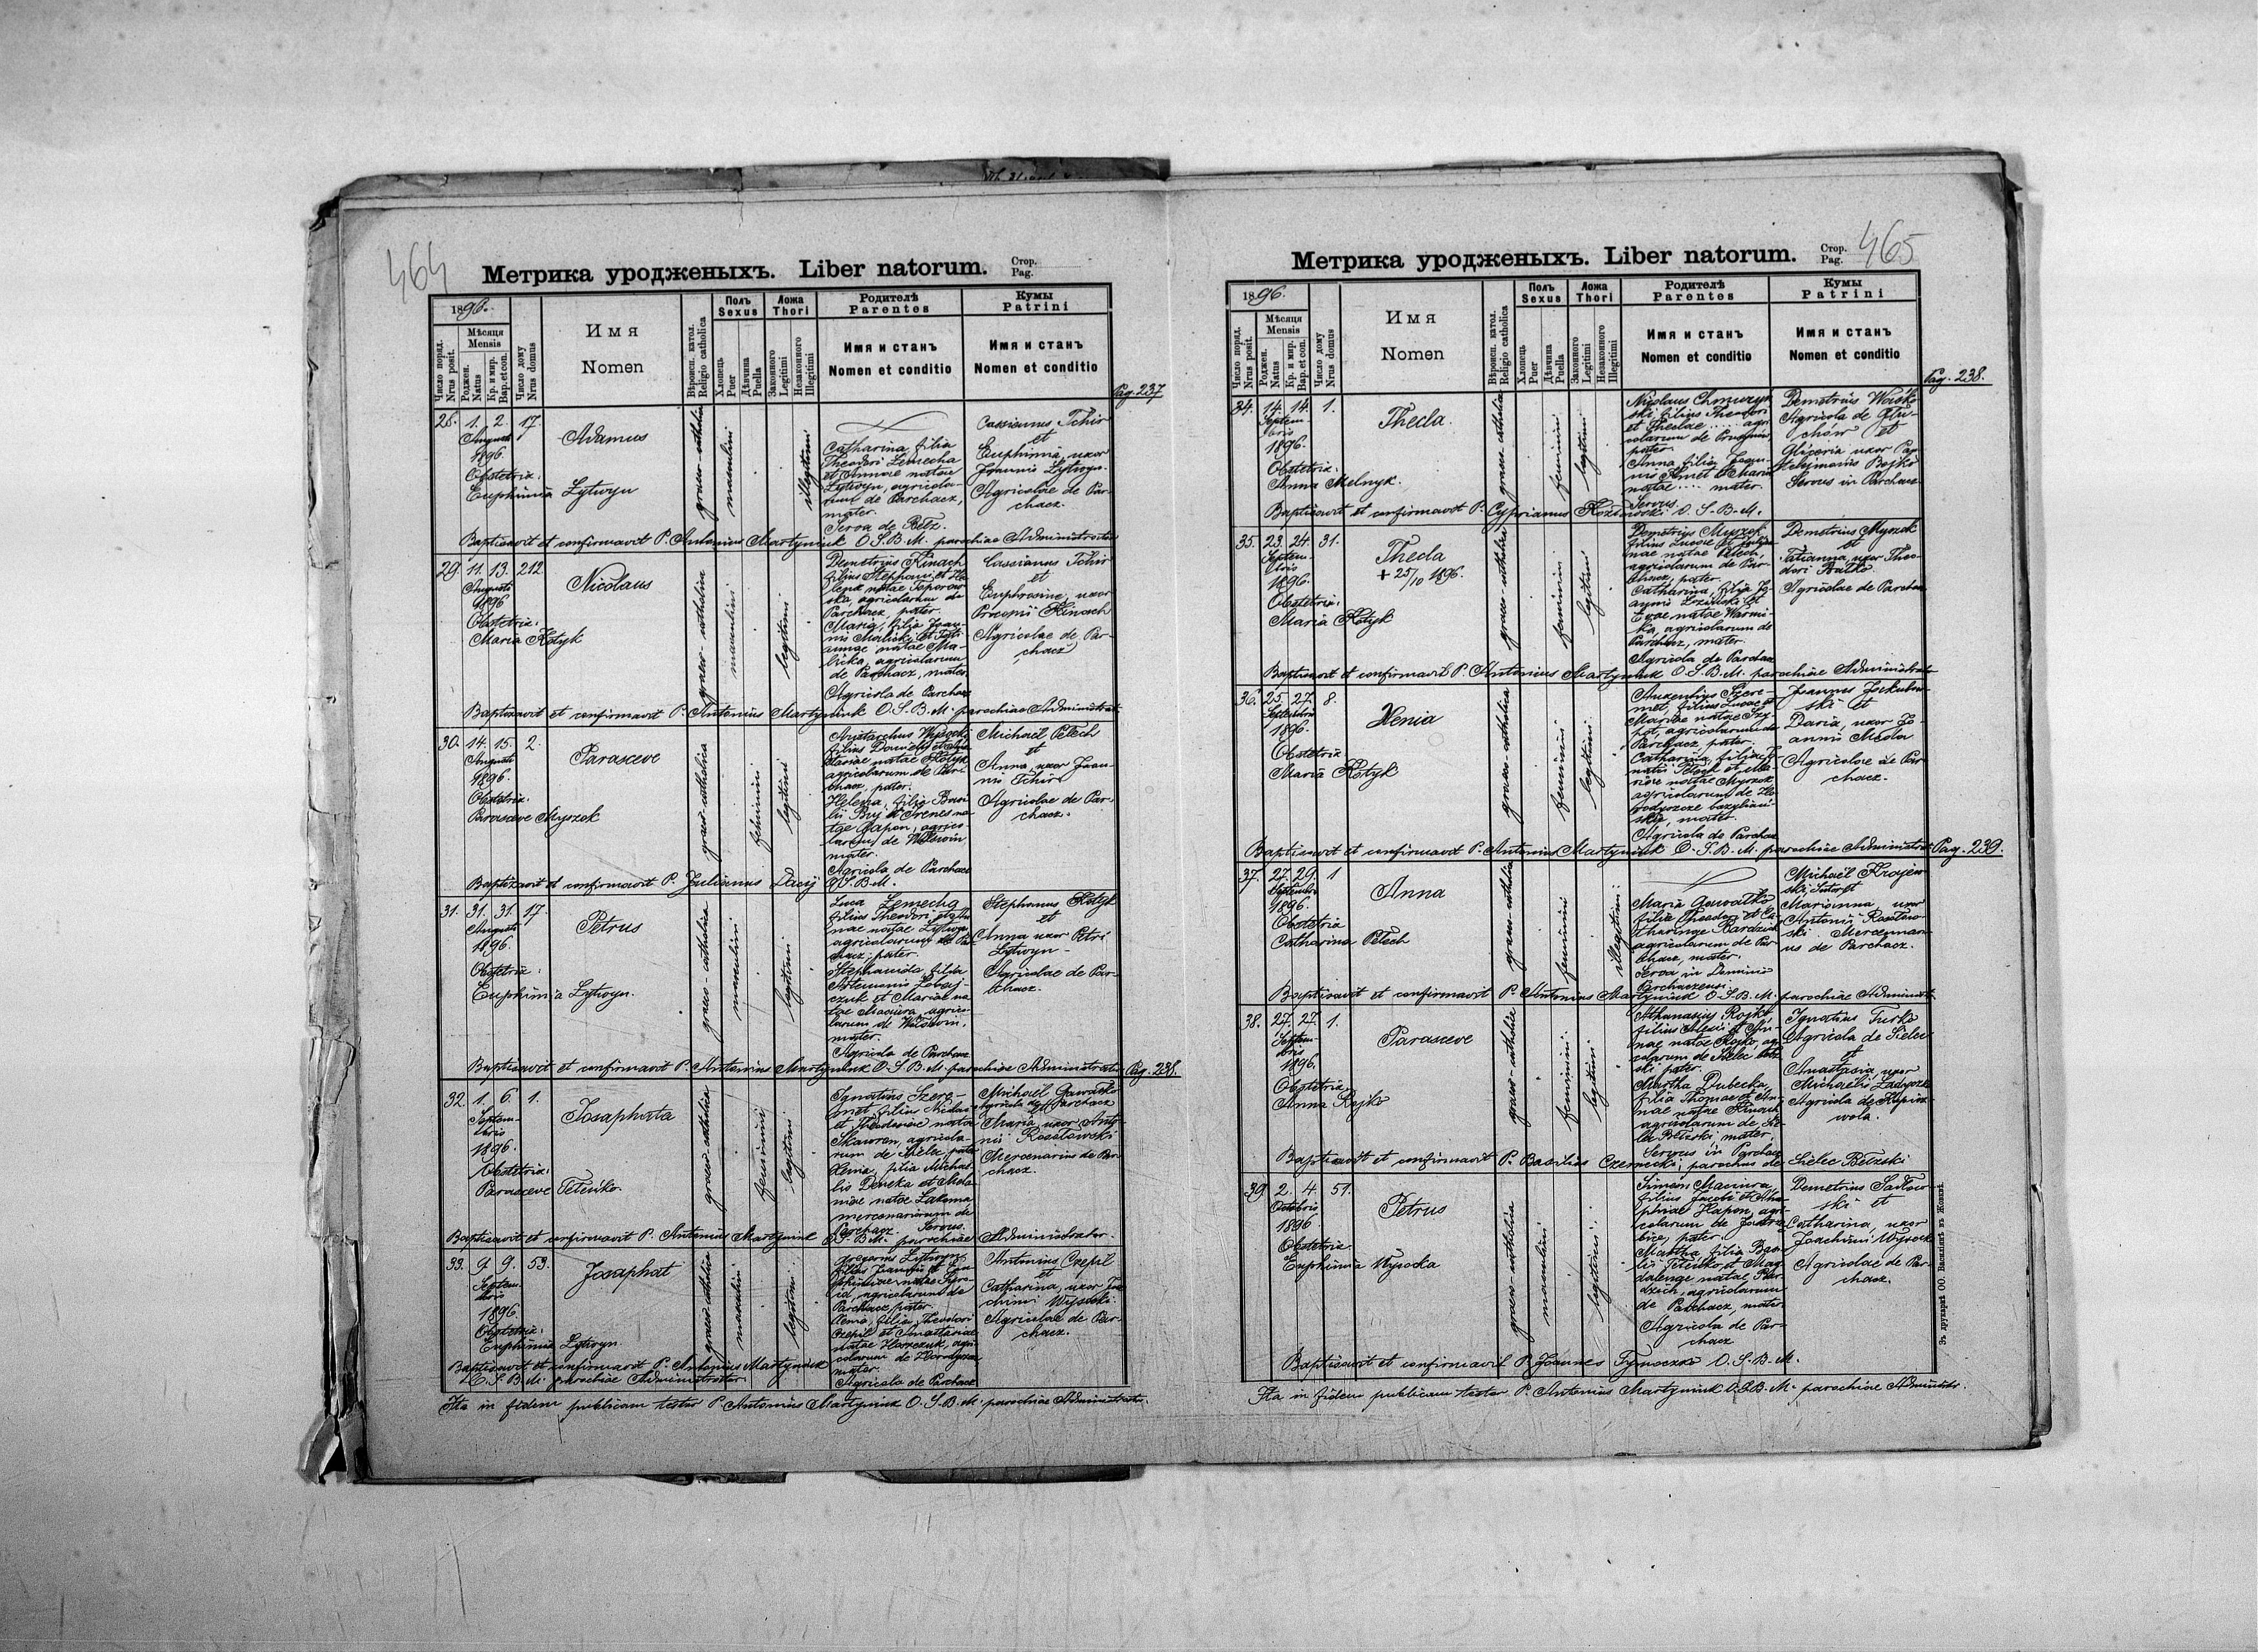 464
Метрика уродженыхъ. Liber natorum.
Стор.
Pag.
1896.
Число поряд.
Nrus posit.
Мѣсяця
Mensis
Роджен.
Natus
Кр. и мир.
Bap. et con.
Число дому
Nrus domus
Имя
Nomen
Вѣроисп. катол.
Religio catholica
Полъ
Sexus
Хлопець
Puer
Дѣвчина
Puella
Ложа
Thori
Законного
Legitimi
Незаконного
Illegitimi
Родителѣ
Parentes
Имя и станъ
Nomen et conditio
Кумы
Patrini
Имя и станъ
Nomen et conditio
Pag. 237
28. 1. 2. 17.
Augusti
1896.
Obstetrix:
Euphimia Lytwyn
Adamus
graeco-catholica
masculini
illegitimi
Catharina filia
Theodori Lemecha
et Annae natae
Lytwyn, agricola-
rum de Parchacz,
mater.
Serva de Bełz.
Cassianus Tchir
et
Euphimia, uxor
Joannis Lytwyn.
Agricolae de Par-
chacz.
Baptisavit et confirmavit P. Antonius Martyniuk O.S.B.M. parochiae Administrator
29. 11. 13. 212.
Augusti
1896
Obstetrix:
Maria Kotyk
Nicolaus
graeco-catholica
masculini
legitimi
Demetrius Kinach
filius Stephani et He-
lenae natae Toporow-
ska, agricolarum de
Parchacz, pater.
Maria, filia Joan-
nis Malicki et Tati-
annae natae Ma-
licka, agricolarum
de Parchacz, mater
Agricola de Parchacz
Cassianus Tchir
et
Euphrosine, uxor
Procopii Kinach
Agricolae de Par-
chacz
Baptisavit et confirmavit P. Antonius Martyniuk O.S.B.M. parochiae Administrator
30. 14. 15. 2.
Augusti
1896.
Obstetrix:
Parasceve Myszok
Parasceve
graeco-catholica
feminini
legitimi
Aristarchus Wysocki
agricolarum de Par-
chacz, pater.
Helena, filia Basi-
lii Bry et Irenes na-
tae Hapon, agrico-
larum de Wolswin
mater.
Agricola de Parchacz
Michaël Petech
et
Anna, uxor Joan-
nis Tchir
Agricolae de Par-
chacz.
Baptisavit et confirmavit P. Julianus Dacij O.S.B.M.
31. 31. 31. 17.
Augusti
1896.
Obstetrix:
Euphimia Lytwyn.
Petrus
graeco-catholica
masculini
legitimi
Luca Lemecha
filius Theodori et An-
nae natae Lytwyn
agricolarum de Par-
chacz, pater.
Stephanida, filia
Artemonis Lobaj-
czuk et Mariae na-
tae Maciura, agrico-
larum de Wolswin,
mater.
Agricola de Parchacz
Stephanus Kotyk
et
Anna uxor Petri
Lytwyn-
Agricolae de Par-
chacz.
Baptisavit et confirmavit P. Antonius Martyniuk O.S.B.M. parochiae Administrator
Pag. 238.
32. 1. 6. 1.
Septem-
bris
1896.
Obstetrix:
Parasceve Tetenko.
Josaphata
graeco-catholica
feminini
legitimi
Ignatius Szere-
met, filius Nicolai
et Theodosiae natae
Skawron, agricola-
rum de Sielec, pater
Xenia, filia Michaë-
lis Deneka et Mela-
niae natae Lakoma,
mercenariorum de
Parchacz Servus.
Michaël Gawałko
Agricola de Parchacz
et
Maria, uxor Anto-
nii Rosołowski
Mercenarius de Par-
chacz.
Baptisavit et confirmavit P. Antonius Martyniuk O.S.B.M. parochiae Administrator.
33. 9. 9. 53.
Septem-
bris
1896.
Obstetrix:
Euphimia Lytwyn.
Josaphat
graeco-catholica
masculini
legitimi
filius Joannis et Eu-
agricolarum de
Parchacz, pater
Xenia, filia Theodori
Czepil et Anastasiae
natae Horczuk, agri-
colarum de Horodyszcze
mater.
Agricola de Parchacz
Antonius Czepil
et
Catharina, uxor Joa-
chimi Wysocki.
Agricolae de Par-
chacz.
Baptisavit et confirmavit P. Antonius Martyniuk
O.S.B.M. parochiae Administrator.
Ita in fidem publicam testor P. Antonius Martyniuk O.S.B.M. parochiae Administrator.
Метрика уродженыхъ. Liber natorum.
Стор.
Pag.
465
1896.
Число поряд.
Nrus posit.
Мѣсяця
Mensis
Роджен.
Natus
Кр. и мир.
Bap. et con.
Число дому
Nrus domus
Имя
Nomen
Вѣроисп. катол.
Religio catholica
Полъ
Sexus
Хлопець
Puer
Дѣвчина
Puella
Ложа
Thori
Законного
Legitimi
Незаконного
Illegitimi
Родителѣ
Parentes
Имя и станъ
Nomen et conditio
Кумы
Patrini
Имя и станъ
Nomen et conditio
Pag. 238.
34. 14. 14. 1.
Septem-
bris
1896.
Obstetrix:
Anna Melnyk.
Thecla.
graeco-catholica
feminini
legitimi
Nicolaus Chmurzyn-
ski, filius Theodori
et Theclae .... agri-
colarum de
pater.
Anna filia Joan-
nis Semet et Mariae
natae .... mater.
Servus.
Demetrius Wojsko
Agricola de Głu-
chów et
Gliceria uxor Par-
Bojko
Servus in Parchacz
Baptisavit et confirmavit P. Cyprianus Kozłowski O.S.B.M.
35. 23. 24. 31.
Septem-
bris
1896.
Obstetrix:
Maria Kotyk
Thecla
+ 25/10 1896.
graeco-catholica
feminini
legitimi
Demetrius Myszok
filius Lucae et Julian-
nae natae Petech,
agricolarum de Par-
chacz, pater.
Catharina, filia Jo-
annis Loziński et
Evae natae Warmi-
ka, agricolarum de
Parchacz, mater.
Agricola de Parchacz
Demetrius Myszok
et
Tatianna, uxor Theo-
dori Bałko
Agricolae de Parchacz
Baptisavit et confirmavit P. Antonius Martyniuk O.S.B.M. parochiae Administrator
36. 25. 27. 8.
Septembris
1896.
Obstetrix
Maria Kotyk
Xenia
graeco-catholica
feminini
legitimi
Auxentius Szere-
met, filius Lucae et
Mariae natae Szy-
pot, agricolarum de
Parchacz, pater.
Catharina, filia Ig-
natii Petech et Ma-
riae natae Myszok
agricolarum de Ho-
rodyszcze bazyliań-
skie, mater.
Agricola de Parchacz
Joannes Jackubow-
ski et
Daria, uxor Jo-
annis Mcola
Agricolae de Par-
chacz.
Baptisavit et confirmavit P. Antonius Martyniuk O.S.B.M. parochiae Administrator
Pag. 239.
37. 27. 29. 1
Septembris
1896.
Obstetrix
Catharina Petech
Anna
graeco-catholica
feminini
illegitimi
Maria Gawałko
filia Theodori et Ca-
tharinae Bardzich
agricolarum de Par-
chacz, mater.
Serva in Dominio
Parchaczensi
Michaël Krajew-
ski Sutor et
Marianna uxor
Antonii Rosołow-
ski Mercenari-
us de Parchacz.
Baptisavit et confirmavit P. Antonius Martyniuk O.S.B.M. parochiae Administrator
38. 27. 27. 1.
Septem-
bris
1896.
Obstetrix
Anna Rojko
Parasceve
graeco-catholica
feminini
legitimi
Athanasius Rojko,
filius Alexii et An-
nae natae Rojko, ag-
ricolarum de Sielec Bełz-
ski pater.
Martha Dubecka,
filia Thomae et An-
nae natae Kinach
agricolarum de Sie-
lec Bełzski, mater.
Servus in Parchacz
Ignatius Turko
Agricola de Sielec
et
Anastasia, uxor
Michaëlis Ladyczka
Agricola de Kupicz-
wola.
Baptisavit et confirmavit P. Basilius Czernecki, parochus de Sielec Bełzski
39. 2. 4. 51.
Octobris
1896.
Obstetrix
Euphimia Wysocka
Petrus
graeco-catholica
masculini
legitimi
Simeon Maciura,
filius Jacobi et Aga-
phiae Hapon, agri-
colarum de Jastrzę-
bica, pater.
Martha, filia Basi-
lii Tetenko, et Mag-
dalenae natae Bar-
dzich, agricolarum
de Parchacz, mater.
Agricola de Par-
chacz
Demetrius Sadłow-
ski et
Catharina, uxor
Joachimi Wysocki
Agricolae de Par-
chacz.
Baptisavit et confirmavit P. Joannes Tymoczko O.S.B.M.
Ita in fidem publicam testor P. Antonius Martyniuk O.S.B.M. parochiae Administr.
Зъ друкарнѣ ОО. Василіянъ въ Жовквѣ.